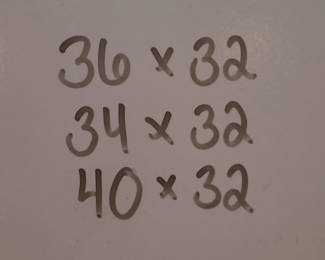 36 x 32
34 x 32
40 x 32